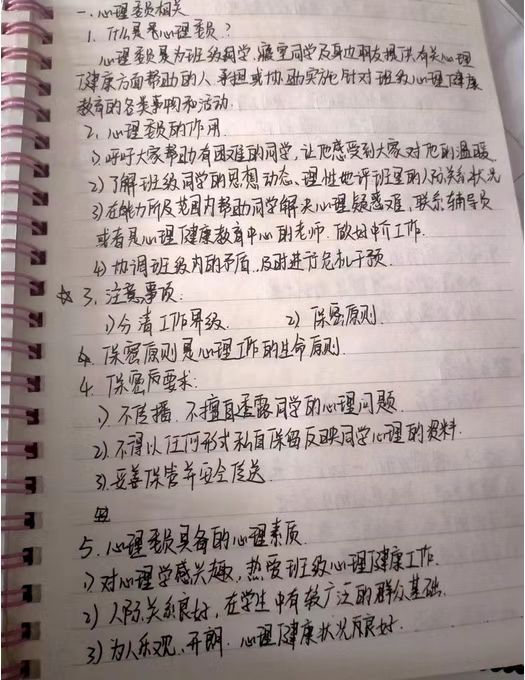 一.心理委员相关
1. 什么是心理委员?
心理委员是为班级同学,寝室同学及身边朋友提供有关心理
健康方面帮助的人,承担或协助实施针对班级心理健康
教育的各类事物和活动.
2. 心理委员的作用
1) 呼吁大家帮助有困难的同学,让他感受到大家对他的温暖
2) 了解班级同学的思想动态,理性地评班里的人际关系状况
3) 在能力所及范围内帮助同学解决心理疑惑难,联系辅导员
或者是心理健康教育中心的老师.做好中介工作.
4) 协调班级内的矛盾,及时进行危机干预.
☆ 3. 注意事项:
1) 分清工作界级. 2) 保密原则.
保密原则是心理工作的生命原则.
4. 保密要求:
1) 不传播,不擅自透露同学的心理问题.
2) 不得以任何形式私自保留反映同学心理的资料.
3) 妥善保管并安全传送.
5. 心理委员具备的心理素质.
1) 对心理学感兴趣,热爱班级心理健康工作.
2) 人际关系良好,在学生中有较广泛的群众基础.
3) 为人乐观、开朗.心理健康状况良好.